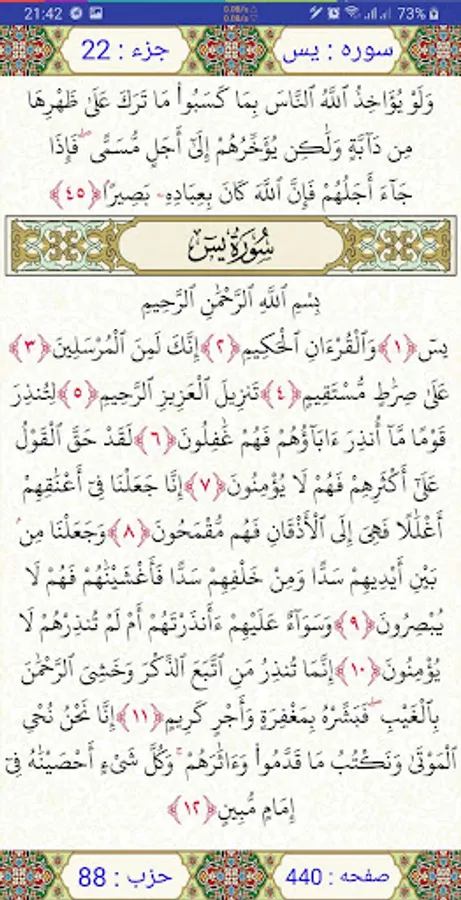 21:42 0.0B/s 0.0B/s 73%
سوره : یس جزء : 22
وَلَوْ يُؤَاخِذُ ٱللَّهُ ٱلنَّاسَ بِمَا كَسَبُوا۟ مَا تَرَكَ عَلَىٰ ظَهْرِهَا
مِن دَآبَّةٍ وَلَٰكِن يُؤَخِّرُهُمْ إِلَىٰٓ أَجَلٍ مُّسَمًّى ۖ فَإِذَا
جَآءَ أَجَلُهُمْ فَإِنَّ ٱللَّهَ كَانَ بِعِبَادِهِۦ بَصِيرًۢا ﴿٤٥﴾
سُورَةُ يسٓ
بِسْمِ ٱللَّهِ ٱلرَّحْمَٰنِ ٱلرَّحِيمِ
يسٓ ﴿١﴾ وَٱلْقُرْءَانِ ٱلْحَكِيمِ ﴿٢﴾ إِنَّكَ لَمِنَ ٱلْمُرْسَلِينَ ﴿٣﴾
عَلَىٰ صِرَٰطٍ مُّسْتَقِيمٍ ﴿٤﴾ تَنزِيلَ ٱلْعَزِيزِ ٱلرَّحِيمِ ﴿٥﴾ لِتُنذِرَ
قَوْمًا مَّآ أُنذِرَ ءَابَآؤُهُمْ فَهُمْ غَٰفِلُونَ ﴿٦﴾ لَقَدْ حَقَّ ٱلْقَوْلُ
عَلَىٰٓ أَكْثَرِهِمْ فَهُمْ لَا يُؤْمِنُونَ ﴿٧﴾ إِنَّا جَعَلْنَا فِىٓ أَعْنَٰقِهِمْ
أَغْلَٰلًا فَهِىَ إِلَى ٱلْأَذْقَانِ فَهُم مُّقْمَحُونَ ﴿٨﴾ وَجَعَلْنَا مِنۢ
بَيْنِ أَيْدِيهِمْ سَدًّا وَمِنْ خَلْفِهِمْ سَدًّا فَأَغْشَيْنَٰهُمْ فَهُمْ لَا
يُبْصِرُونَ ﴿٩﴾ وَسَوَآءٌ عَلَيْهِمْ ءَأَنذَرْتَهُمْ أَمْ لَمْ تُنذِرْهُمْ لَا
يُؤْمِنُونَ ﴿١٠﴾ إِنَّمَا تُنذِرُ مَنِ ٱتَّبَعَ ٱلذِّكْرَ وَخَشِىَ ٱلرَّحْمَٰنَ
بِٱلْغَيْبِ ۖ فَبَشِّرْهُ بِمَغْفِرَةٍ وَأَجْرٍ كَرِيمٍ ﴿١١﴾ إِنَّا نَحْنُ نُحْىِ
ٱلْمَوْتَىٰ وَنَكْتُبُ مَا قَدَّمُوا۟ وَءَاثَٰرَهُمْ ۚ وَكُلَّ شَىْءٍ أَحْصَيْنَٰهُ فِىٓ
إِمَامٍ مُّبِينٍ ﴿١٢﴾
صفحه : 440 حزب : 88